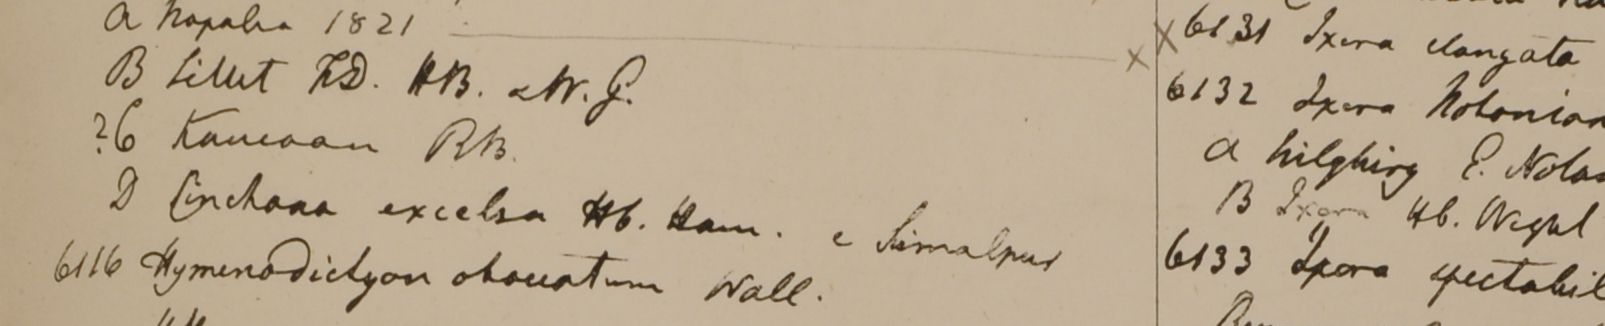 a Napalia 1821
B Sillet F.D. HB. & W.G.
?C Kaucoan RB.
D Cinchona excelsa Hb. Ham. e Simalpur
6116 Hymenodictyon obovatum Wall.
6131 Ixora elongata
6132 Ixora Notonian
a Nilghiry E. Noton
B Ixora Hb. Wight
6133 Ixora spectabil